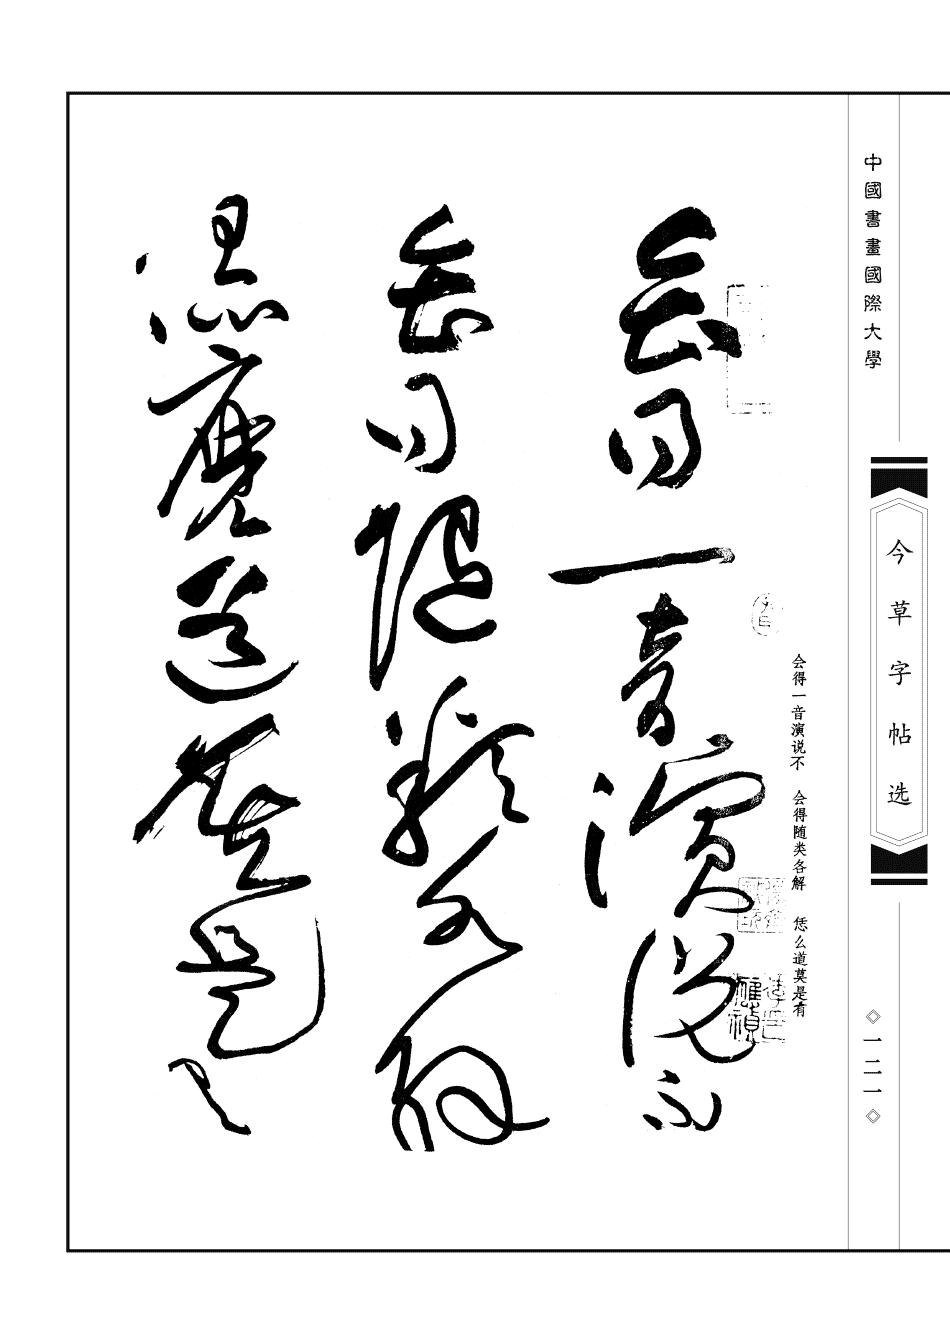 中國書畫國際大學
今草字帖选
一二一
会得一音演说不 会得随类各解 恁么道莫是有
会得一音演说不
会得随类各解
恁么道莫是有